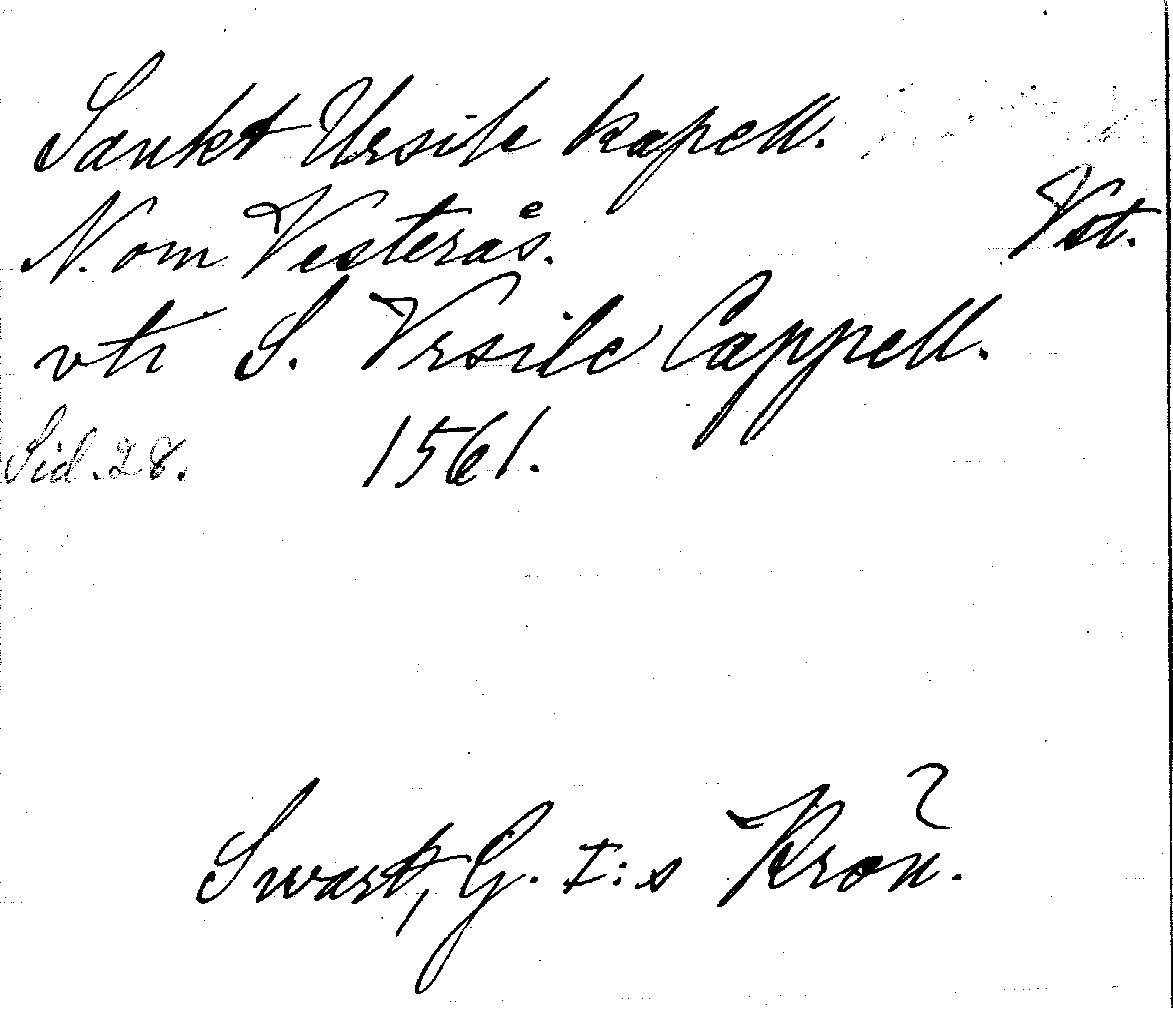 Sankt Ursile kapell.
N. om Vesterås. Vst.
vti S. Vrsile Cappell.
Sid. 28. 1561.
Swart, G. I:s Krön.